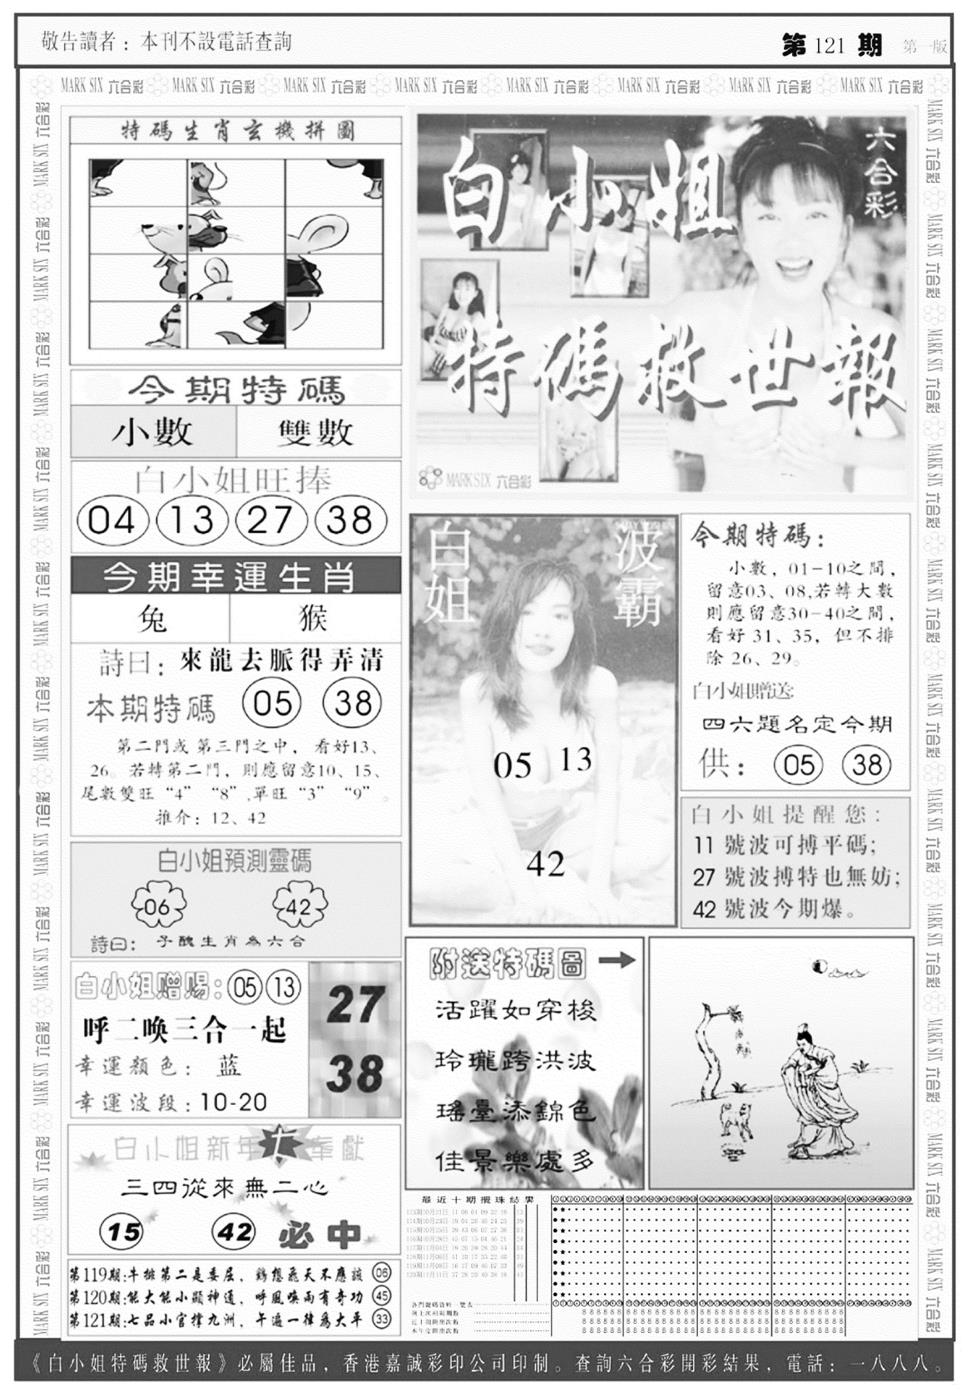 敬告讀者：本刊不設電話查詢
第 121 期 第一版
MARK SIX 六合彩 MARK SIX 六合彩 MARK SIX 六合彩 MARK SIX 六合彩 MARK SIX 六合彩 MARK SIX 六合彩 MARK SIX 六合彩 MARK SIX 六合彩
特碼生肖玄機拼圖
今期特碼
小數 雙數
白小姐旺捧
04 13 27 38
今期幸運生肖
兔 猴
詩曰：來龍去脈得弄清
本期特碼 05 38
第二門或第三門之中，看好13、
26。若轉第二門，則應留意10、15、
尾數雙旺“4” “8”,單旺“3” “9”。
推介：12、42
白小姐預測靈碼
06 42
詩曰：子醜生肖為六合
白小姐赠赐：05 13
呼二唤三合一起
幸運顏色：蓝
幸運波段：10-20
27
38
白小姐新年奉獻
三四從來無二心
15 42 必中
第119期:牛排第二是委屈，鷄想飛天不應該 06
第120期:能大能小顯神通，呼風喚雨有奇功 45
第121期:七品小官撑九洲，午過一律為大平 33
白小姐
六合彩
特碼救世報
MARK SIX 六合彩
白姐
波霸
05 13
42
今期特碼：
小數，01-10之間，
留意03、08,若轉大數
則應留意30-40之間，
看好31、35，但不排
除26、29。
白小姐贈送:
四六題名定今期
供：05 38
白小姐提醒您：
11 號波可搏平碼;
27 號波搏特也無妨;
42 號波今期爆。
附送特碼圖
活躍如穿梭
玲瓏跨洪波
瑤臺添錦色
佳景樂處多
最近十期攪珠結果
《白小姐特碼救世報》必屬佳品，香港嘉誠彩印公司印制。查詢六合彩開彩結果，電話：一八八八。